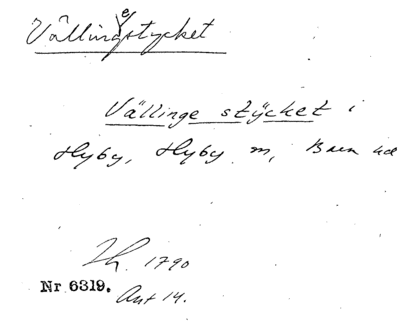 Vällingestycket
Vällinge stÿcket i
Hyby, Hyby m, Bara hd
Th. 1790
Nr 6319.
Ant 14.